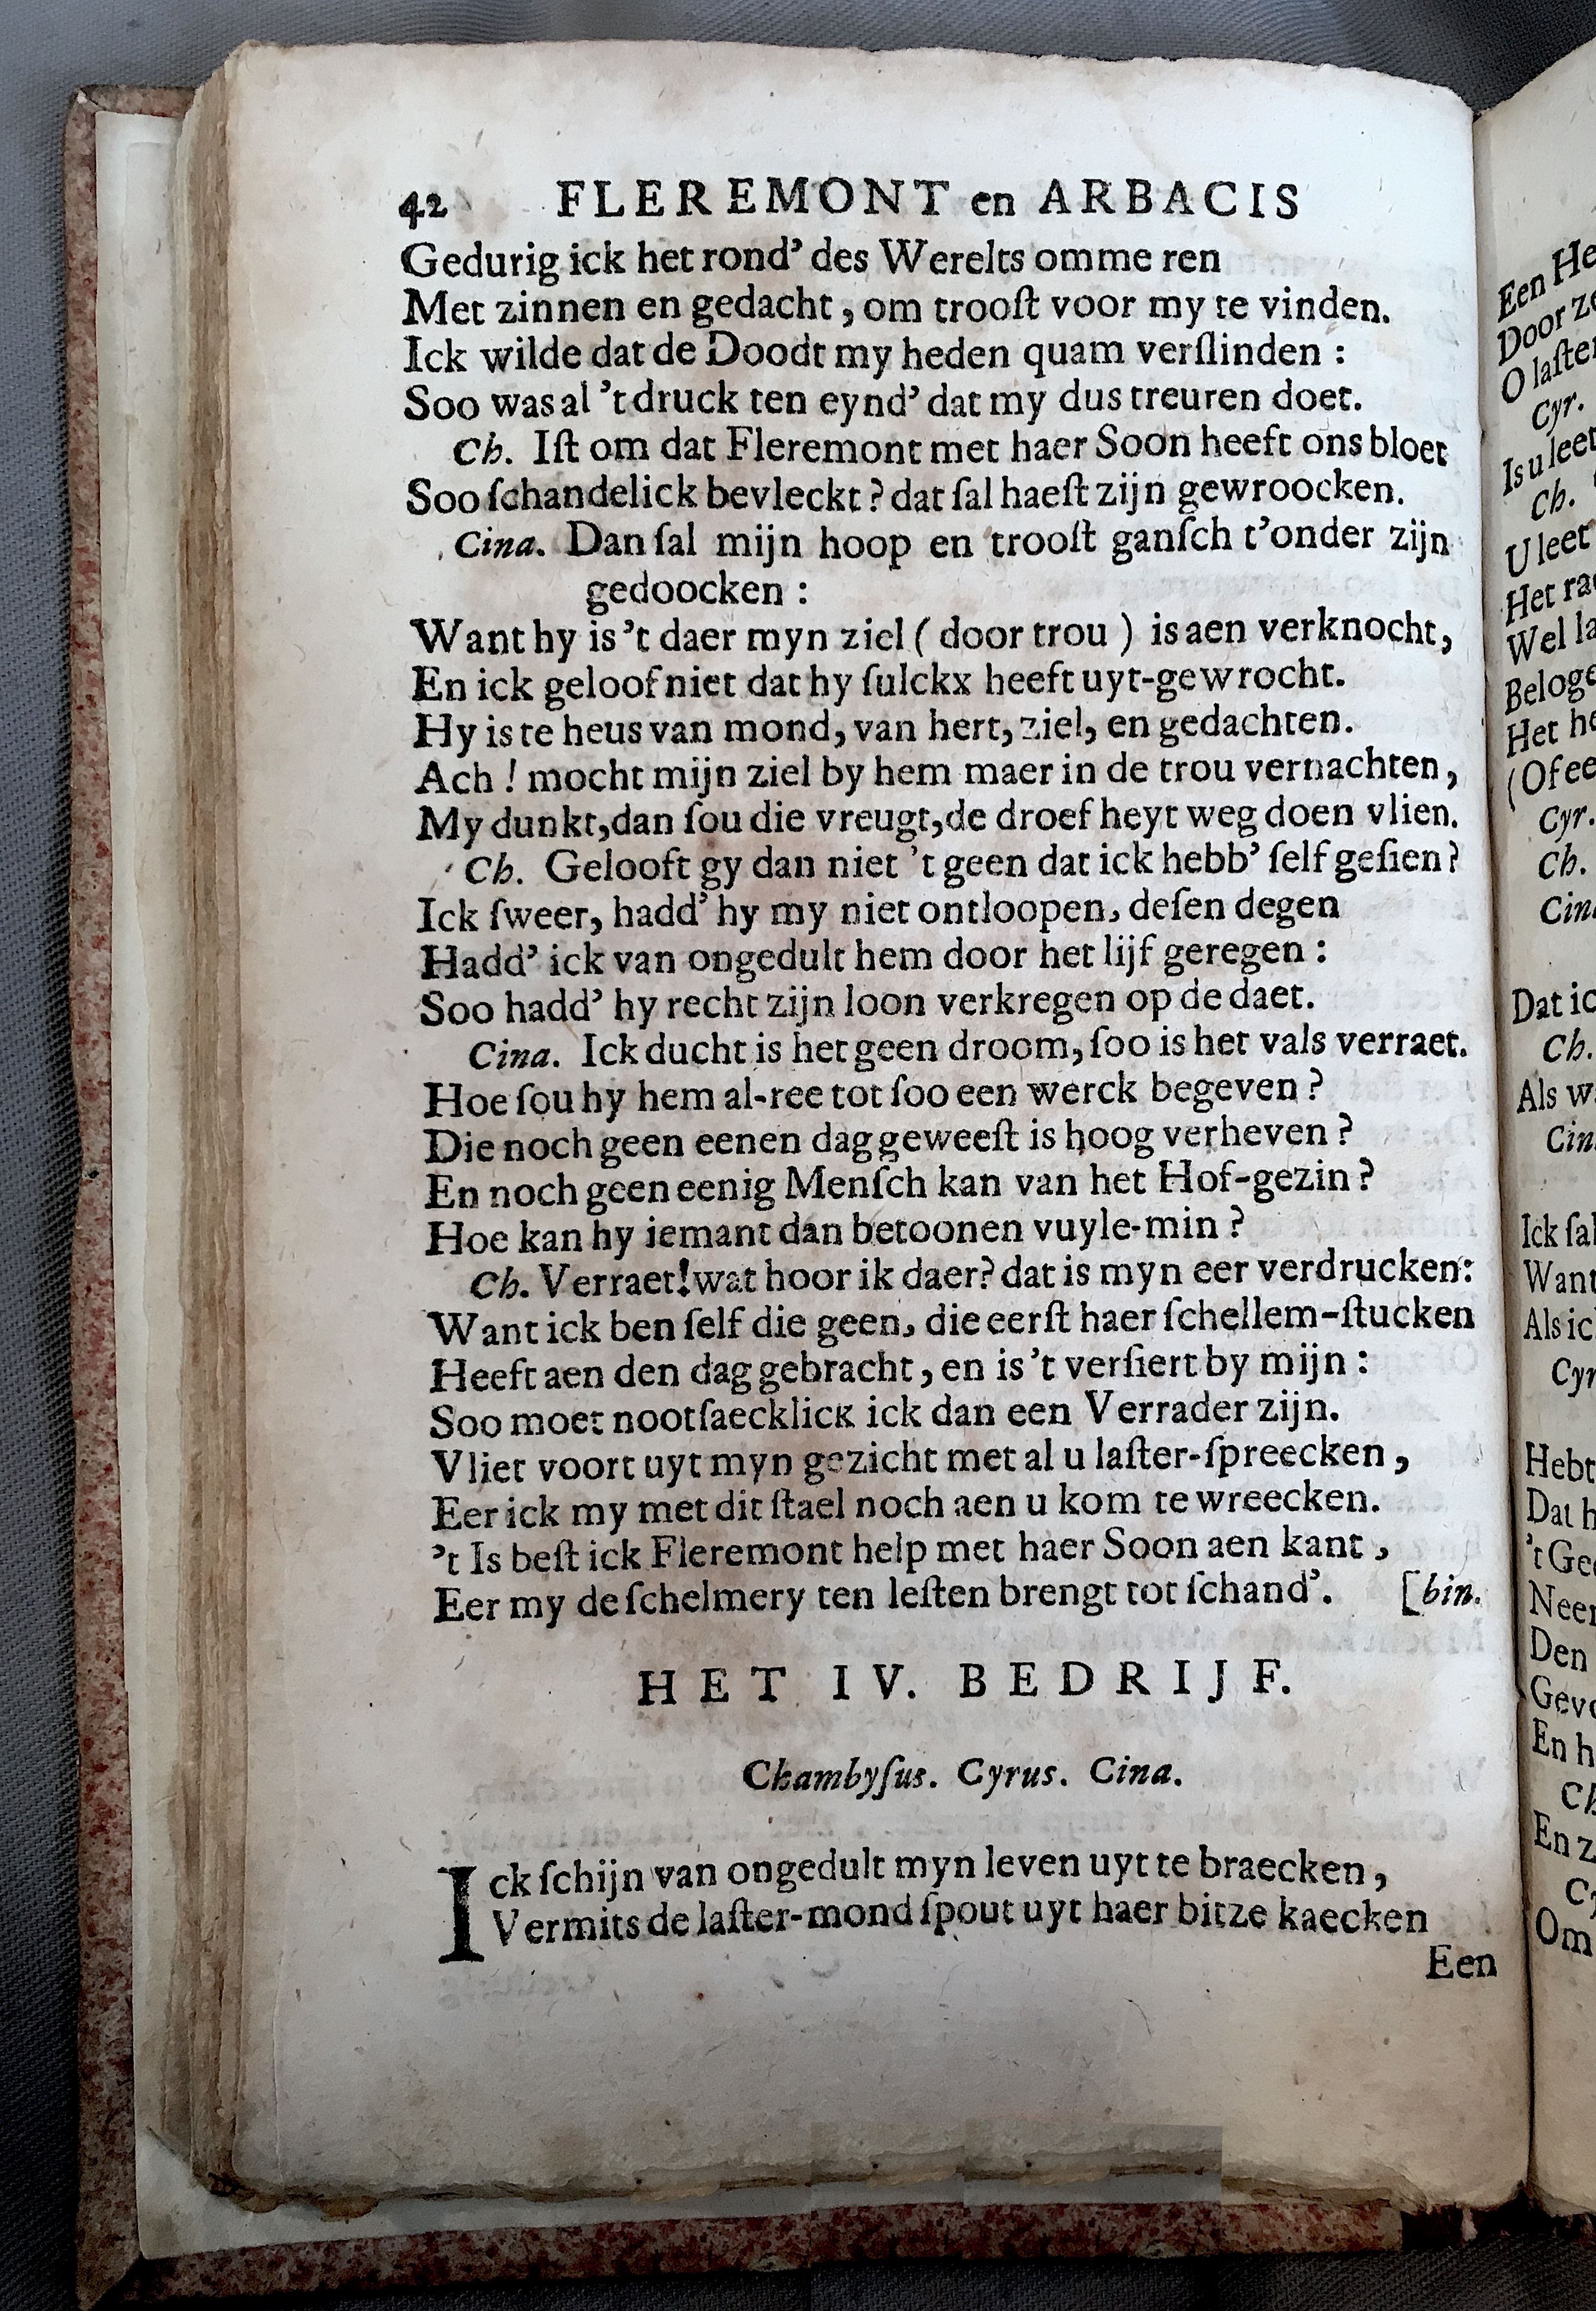 42 FLEREMONT en ARBACIS
Gedurig ick het rond’ des Werelts omme ren
Met zinnen en gedacht, om trooſt voor my te vinden.
Ick wilde dat de Doodt my heden quam verſlinden :
Soo was al ’t druck ten eynd’ dat my dus treuren doet.
Ch. Iſt om dat Fleremont met haer Soon heeft ons bloet
Soo ſchandelick bevleckt? dat ſal haeſt zijn gewroocken.
Cina. Dan ſal mijn hoop en trooſt ganſch t’onder zijn
gedoocken :
Want hy is ’t daer myn ziel ( door trou ) is aen verknocht,
En ick geloof niet dat hy ſulckx heeft uyt-gewrocht.
Hy is te heus van mond, van hert, ziel, en gedachten.
Ach ! mocht mijn ziel by hem maer in de trou vernachten,
My dunkt,dan ſou die vreugt,de droef heyt weg doen vlien.
Ch. Gelooft gy dan niet ’t geen dat ick hebb’ ſelf geſien?
Ick ſweer, hadd’ hy my niet ontloopen, deſen degen
Hadd’ ick van ongedult hem door het lijf geregen :
Soo hadd’ hy recht zijn loon verkregen op de daet.
Cina. Ick ducht is het geen droom, ſoo is het vals verraet.
Hoe ſou hy hem al-ree tot ſoo een werck begeven ?
Die noch geen eenen dag geweeſt is hoog verheven ?
En noch geen eenig Menſch kan van het Hof-gezin ?
Hoe kan hy iemant dan betoonen vuyle-min ?
Ch. Verraet! wat hoor ik daer? dat is myn eer verdrucken:
Want ick ben ſelf die geen, die eerſt haer ſchellem-ſtucken
Heeft aen den dag gebracht, en is ’t verſiert by mijn :
Soo moet nootſaecklick ick dan een Verrader zijn.
Vliet voort uyt myn gezicht met al u laſter-ſpreecken,
Eer ick my met dit ſtael noch aen u kom te wreecken.
’t Is beſt ick Fleremont help met haer Soon aen kant,
Eer my de ſchelmery ten leſten brengt tot ſchand’. [bin.
HET IV. BEDRIJF.
Chambyſus. Cyrus. Cina.
Ick ſchijn van ongedult myn leven uyt te braecken,
Vermits de laſter-mond ſpout uyt haer bitze kaecken
Een
Een He
Door ze
O laſter
Cyr.
Is u leet
Ch.
U leet
Het ra
Wel la
Beloge
Het he
(Of ee
Cyr.
Ch.
Cina
Dat ic
Ch.
Als w
Cin
Ick ſal
Want
Als ic
Cyr
Hebt
Dat h
’t Ge
Neer
Den
Gevo
En h
Ch
En z
Cy
Om